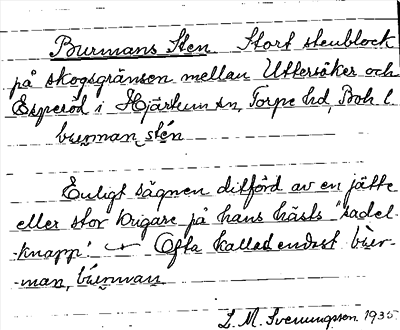 Burmans Sten Stort stenblock
på skogsgränsen mellan Uttersäker och
Esperöd i Hjärtum sn, Torpe hd, Boh l.
buṛman stén
Enligt sägnen ditförd av en jätte
eller stor krigare på hans hästs "sadel-
knapp". — Ofta kallad endast bùr-
man, bùrman
L. M. Svenungsson 1935